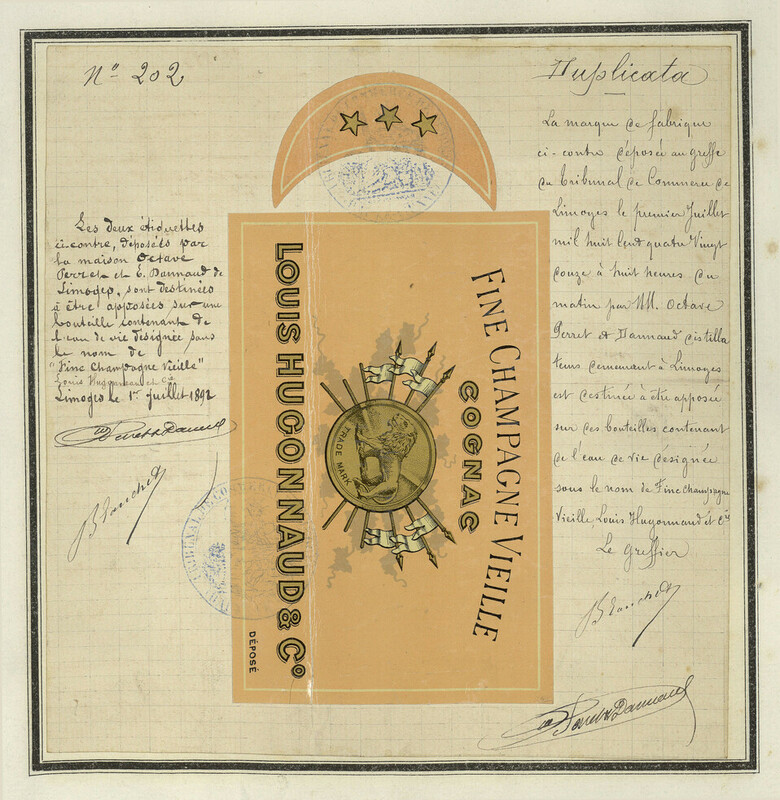 Nº 202
Duplicata
Les deux étiquettes
ci-contre, déposées par
la maison Octave
Perret et E. Dannaud de
Limoges, sont destinées
à être apposées sur une
bouteille contenant de
l'eau de vie désignée sous
le nom de
"Fine Champagne Vieille"
Louis Hugonnaud et Cº
Limoges le 1er juillet 1892
Perret & Dannaud
Blanchet
LOUIS HUGONNAUD & Cº
DÉPOSÉ
TRADE MARK
COGNAC
FINE CHAMPAGNE VIEILLE
La marque de fabrique
ci-contre déposée au greffe
du tribunal de Commerce de
Limoges le premier Juillet
mil huit cent quatre Vingt
douze à huit heures du
matin par MM. Octave
Perret et Dannaud distilla
teurs demeurant à Limoges
est destinée à être apposée
sur des bouteilles contenant
de l'eau de vie désignée
sous le nom de Fine Champagne
Vieille, Louis Hugonnaud et Cie
Le Greffier
Blanchet
Perret & Dannaud